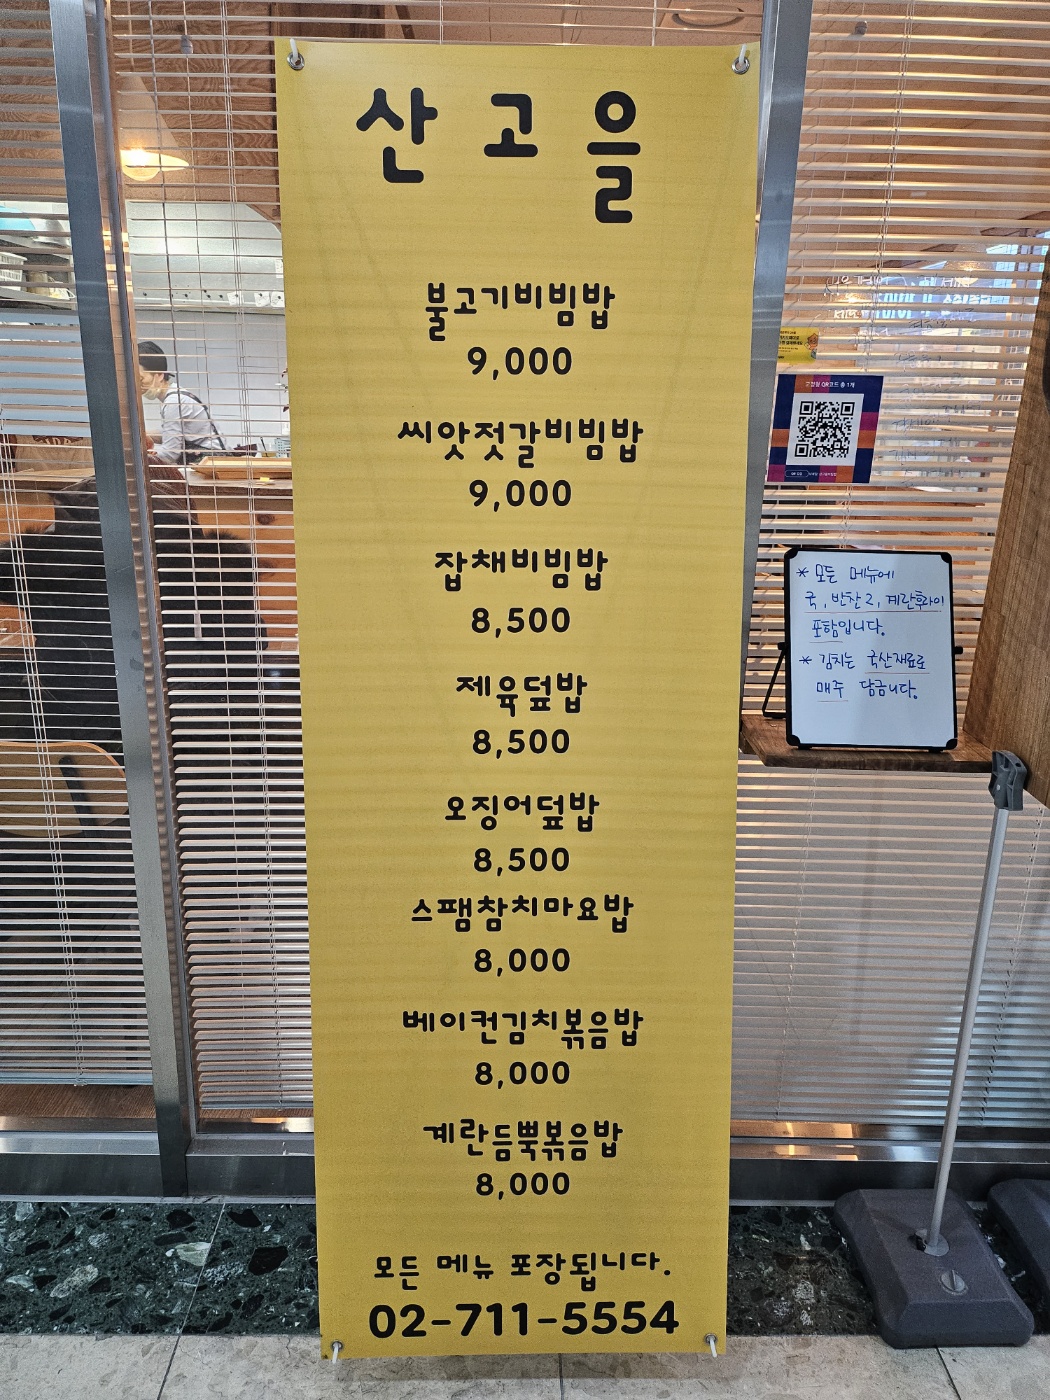 산고을
불고기비빔밥
9,000
씨앗젓갈비빔밥
9,000
잡채비빔밥
8,500
제육덮밥
8,500
오징어덮밥
8,500
스팸참치마요밥
8,000
베이컨김치볶음밥
8,000
계란듬뿍볶음밥
8,000
모든 메뉴 포장됩니다.
02-711-5554
* 모든 메뉴에
국, 반찬2, 계란후라이
포함입니다.
* 김치는 국산재료로
매주 담급니다.